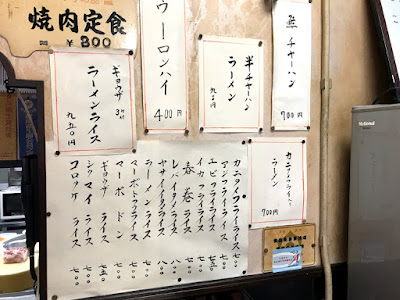 焼肉定食
￥800
ウーロンハイ
400円
半チャーハン
ラーメン
九五〇円
チャーハン
700円
ギョウザ 3ケ付
ラーメンライス
九五〇円
ラーメン
700円
カニクリームライス 七〇〇
アジフライライス 七〇〇
エビフライライス
イカフライライス 七〇〇
春巻ライス 七〇〇
レバイタメライス 八〇〇
ヤサイイタメライス
ラーメンライス 七五〇
マーボトウフライス
マーボドン 七〇〇
ギョウザ ライス 七五〇
シウマイ ライス 七〇〇
コロッケ ライス 七〇〇
National